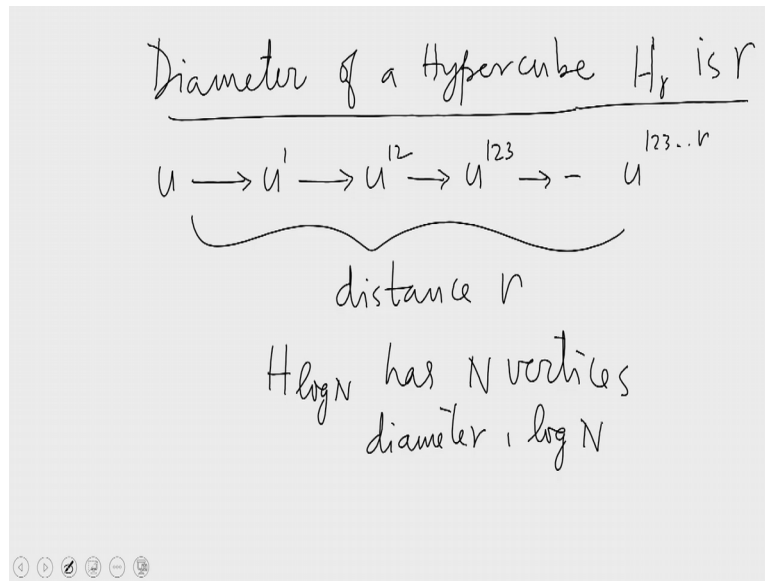 Diameter of a Hypercube Hᵣ is r
u → u¹ → u¹² → u¹²³ → - u¹²³··ʳ
distance r
H log N has N vertices
diameter, log N